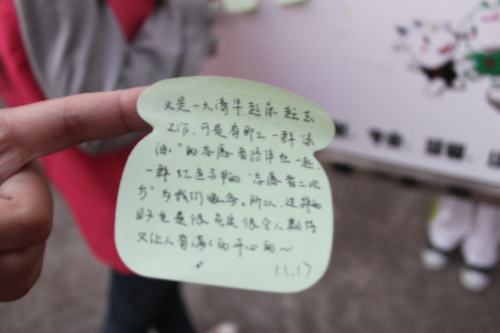 又是一大清早起来赶去
工作,可是有那么一群"添
油"的志愿者陪伴在一起,
一群红色马甲的"志愿者二次
方"为我们服务。所以,这样的
日子也是很充实很令人期待
又让人有满满的开心的~
11.17